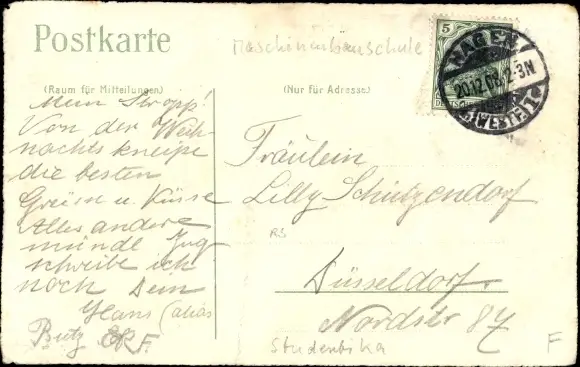 Postkarte
Maschinenbauschule
5
HAGEN
20.12.08.2-3N
(WESTF.) 1
(Raum für Mitteilungen)
(Nur für Adresse)
Mein Stropp!
Von der Weih-
nachtskneipe
die besten
Grüsse u. Küsse
Alles andere
schreibe ich
noch Dein
Hans (alias
Butz
Fräulein
Lilly Schützendorf
RS
Düsseldorf
Nordstr 87
Studentika
F